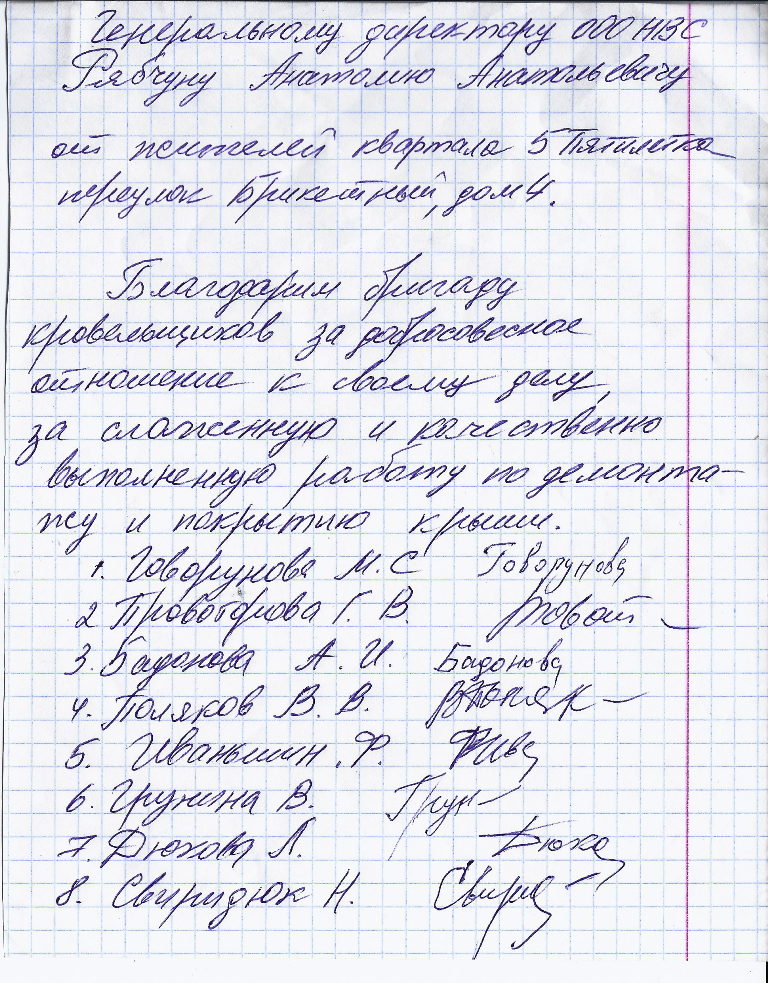 Генеральному директору ООО НЗС
Рябчуну Анатолию Анатольевичу
от жителей квартала 5 Пятилетка
переулок Брикетный, дом 4.
Благодарим бригаду
кровельщиков за добросовесное
отношение к своему делу,
за слаженную и качественно
выполненную работу по демонта-
жу и покрытию крыши.
1. Говорунова М. С Говорунова
2 Провоторова Г. В.
3. Бадонова А. И. Бадонова
4. Поляков В. В.
5. Иваньшин .Ф.
6. Грунина В. Грун
7. Дюхова Л. Дюхо
8. Свиридюк Н. Свирид